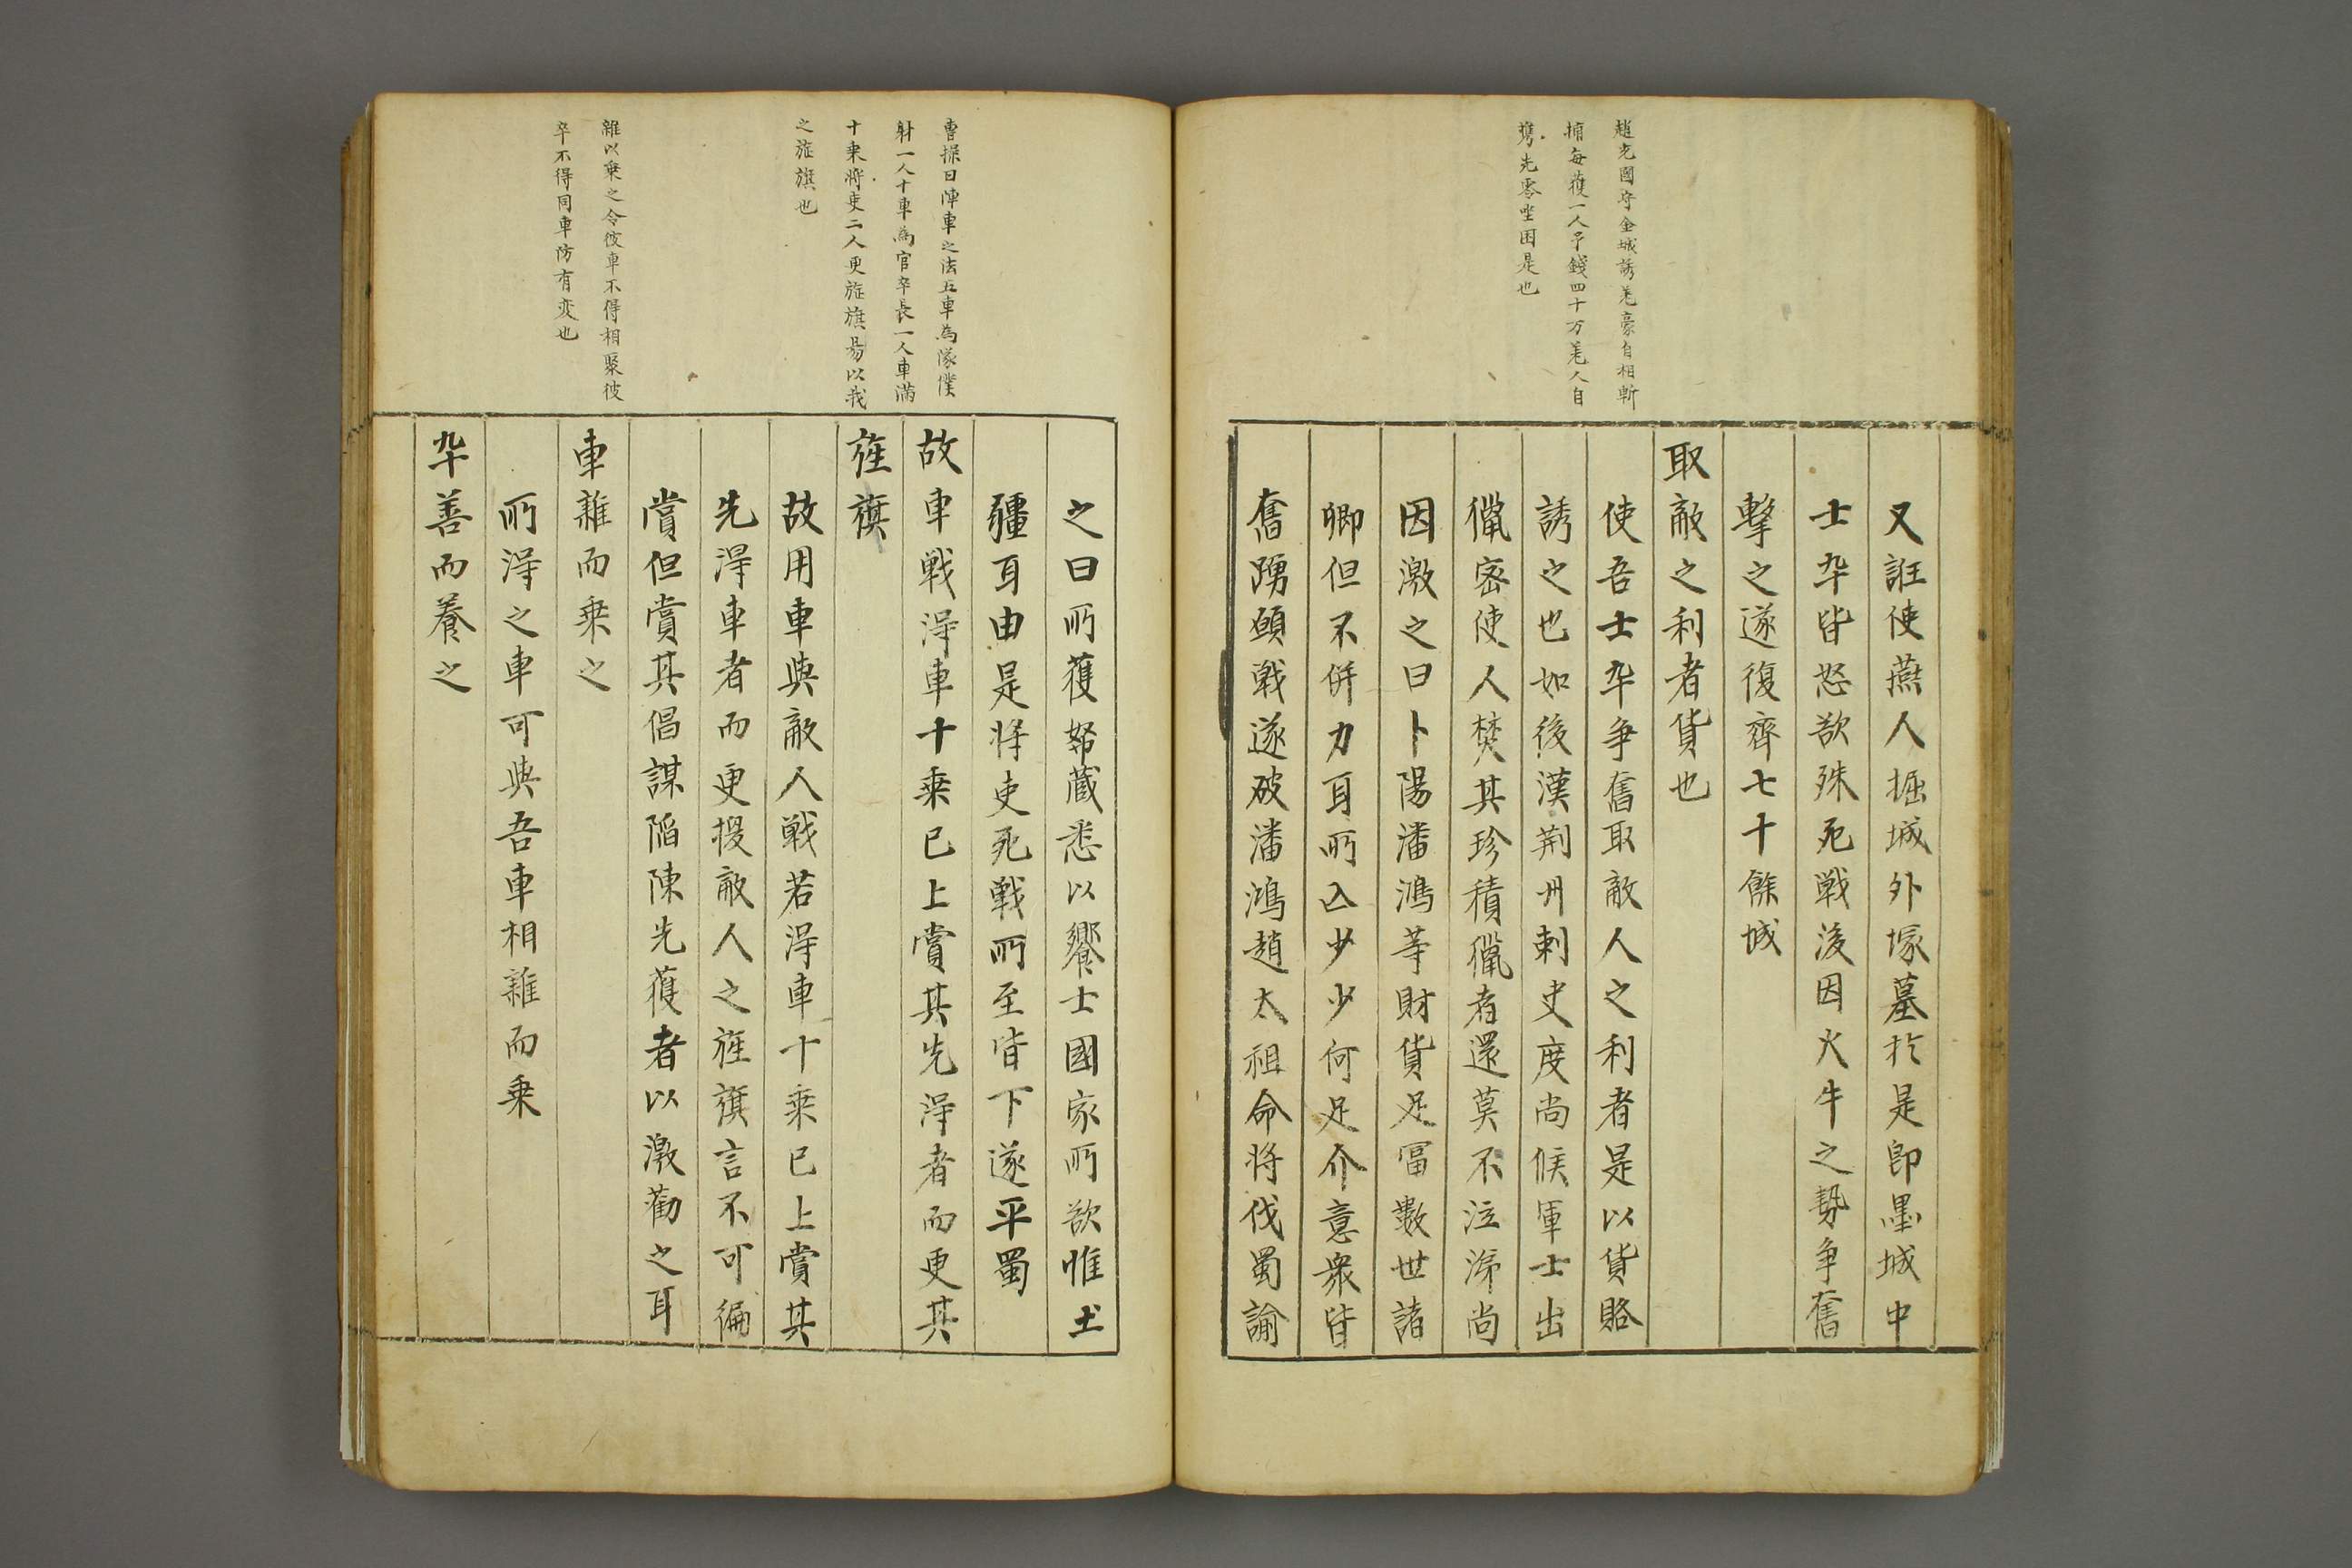 趙充國守金城誘羌豪自相斬
捕每獲一人予錢四十万羌人自
携先零坐困是也
又誑使燕人掘城外塚墓於是即墨城中
士卆皆怒欲殊死戦後因火牛之勢争奮
擊之遂復齊七十餘城
取敵之利者貨也
使吾士卆争奮取敵人之利者是以貨賂
誘之也如後漢荆州刺史度尚候軍士出
獵密使人焚其珍積獵者還莫不泣涕尚
因激之曰卜陽潘鴻等財貨足冨數世諸
卿但不併力耳所亾少少何足介意衆皆
奮踴願戦遂破潘鴻趙太祖命将伐蜀諭
曹操曰陣車之法五車為隊僕
射一人十車為官卒長一人車滿
十乗将吏二人更旌旗易以我
之旌旗也
雜以乗之令彼車不得相聚彼
卒不得同車防有変也
之曰所獲帑蔵悉以饗士國家所欲惟土
疆耳由是将吏死戦所至皆下遂平蜀
故車戦淂車十乗已上賞其先淂者而更其
旌旗
故用車與敵人戦若淂車十乗已上賞其
先淂車者而更援敵人之旌旗言不可徧
賞但賞其倡謀陷陳先獲者以激勸之耳
車雜而乗之
所淂之車可與吾車相雜而乗
卆善而養之